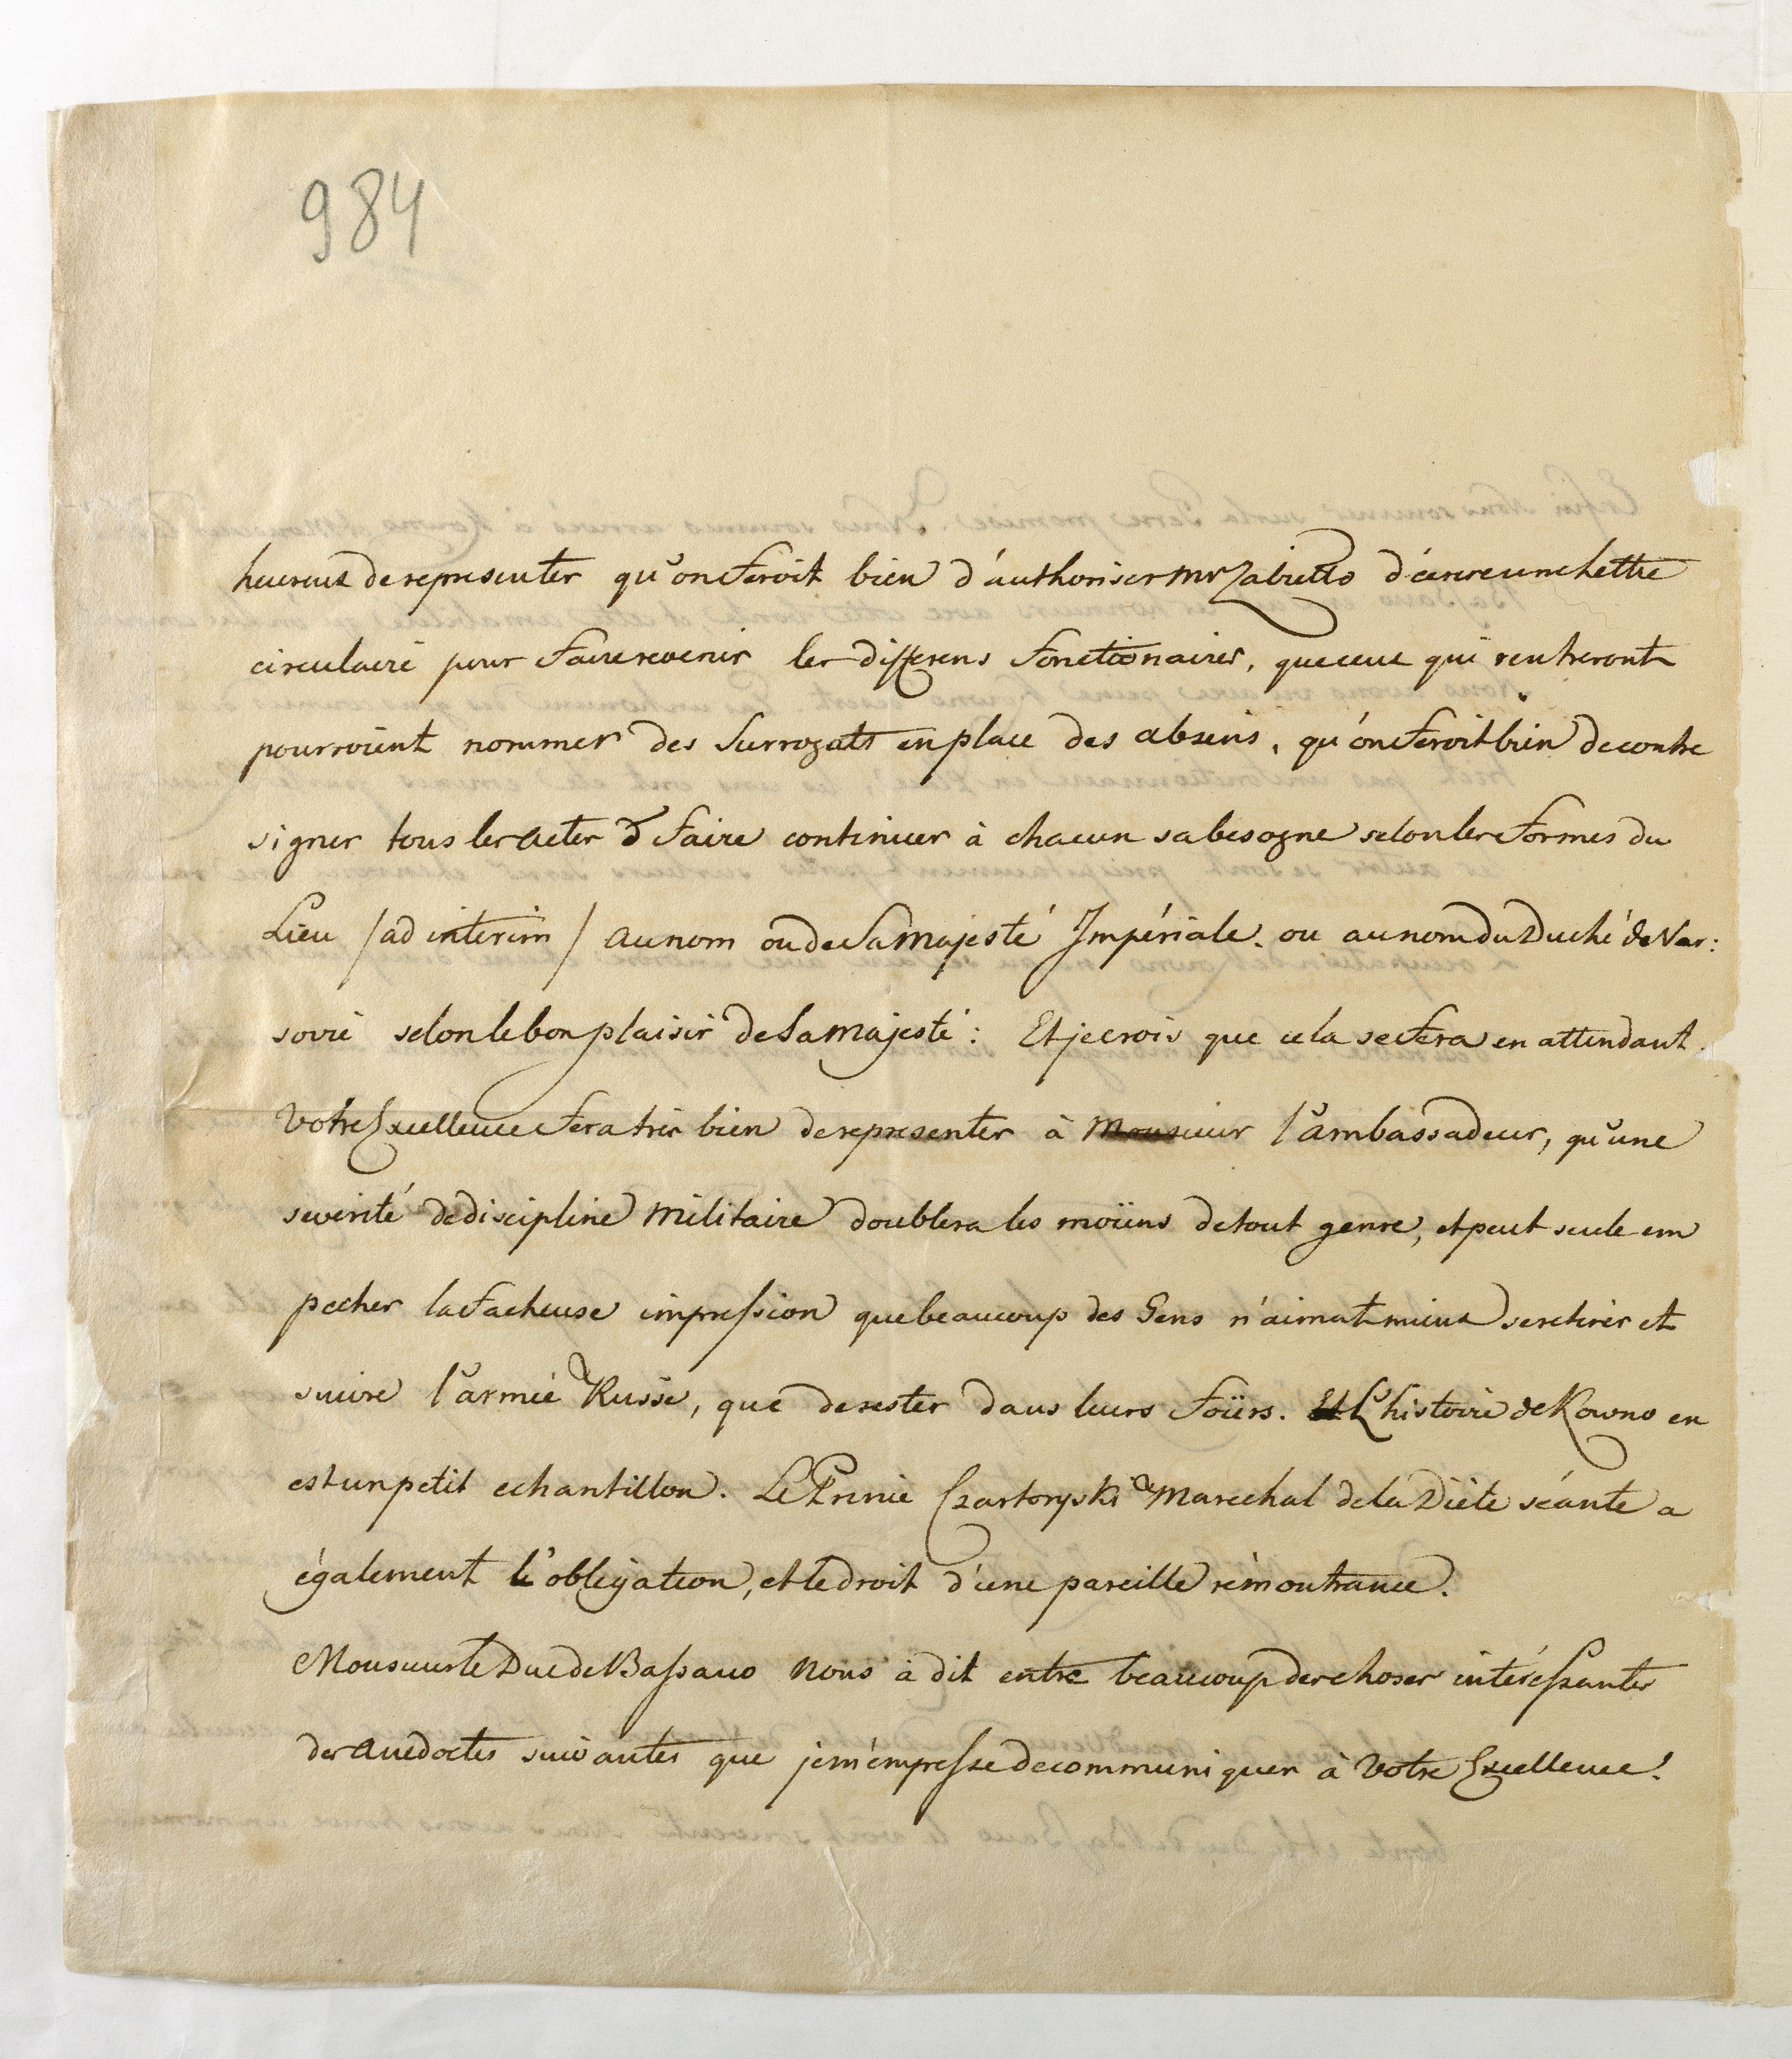 984
heureux de representer qu'on feroit bien d'authoriser Mr Zabiełło d'écrire une lettre
circulaire pour faire revenir les differens fonctionaires, que ceux qui rentreront
pourroient nommer des Surrogats en place des absens, qu'on feroit bien de contre
signer tous les actes & faire continuer à chacun sa besogne selon les formes du
Lieu /ad interim/ au nom ou de Sa Majesté Impériale. ou au nom du Duché de Var:
sovie selon le bon plaisir de Sa Majesté: Et je crois que cela se fera en attendant.
Votre Excellence fera tres bien de representer à Monsieur l'ambassadeur, qu'une
severité de discipline Militaire doublera les moïens de tout genre, et peut seule em
pecher la facheuse impression que beaucoup des Gens n'aimat mieux se retirer et
suivre l'armée Russe, que de rester dans leurs foïers. L'histoire de Kowno en
est un petit echantillon. Le Prince Czartoryski Marechal de la Diète séante a
également l'obligation, et le droit d'une pareille rémontrance.
Monsieur le Duc de Bassano Nous à dit entre beaucoup des choses intéressantes
des anedoctes suivantes que je m'empresse de communiquer à Votre Excellence.